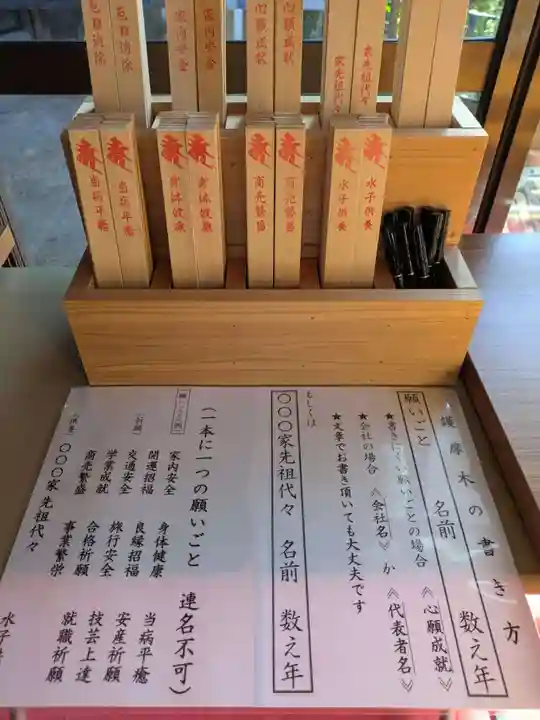 厄難消除
厄難消除
家内安全
家内安全
心願成就
心願成就
家先祖代々
家先祖代々
当病平癒
当病平癒
身体健康
身体健康
商売繁盛
商売繁盛
水子供養
水子供養
護摩木の書き方
願いごと 名前 数え年
★書きにくい願いごとの場合 《心願成就》
★会社の場合 《会社名》か《代表者名》
★文章でお書き頂いても大丈夫です
もしくは
〇〇〇家先祖代々 名前 数え年
(一本に一つの願いごと 連名不可)
家内安全 身体健康 当病平癒
開運招福 良縁招福 安産祈願
交通安全 旅行安全 技芸上達
学業成就 合格祈願 就職祈願
商売繁盛 事業繁栄
〇〇〇家先祖代々 水子